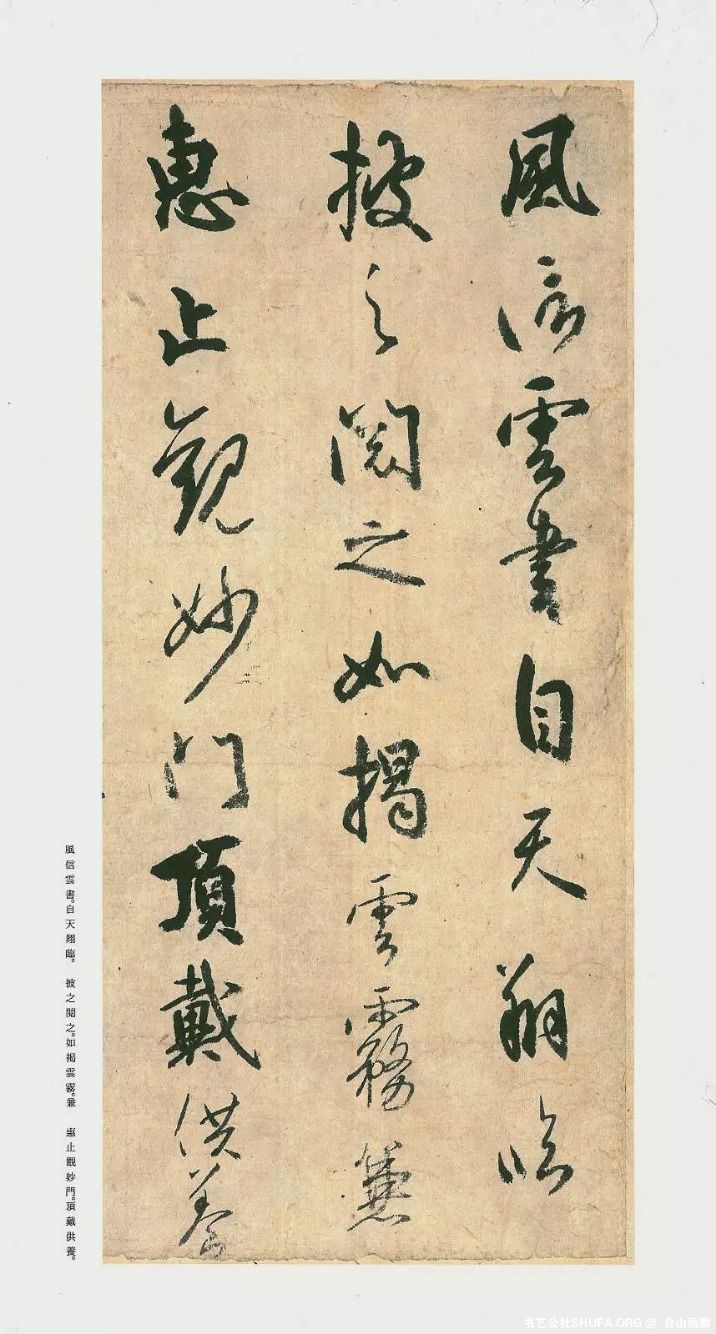 風信雲書自天翔臨
披之閱之如揭雲霧兼
惠止觀妙門頂戴供養
風信雲書。自天翔臨。 披之閱之。如揭雲霧。兼 惠止觀妙門。頂戴供養。
书艺公社SHUFA.ORG @ 台山画廊